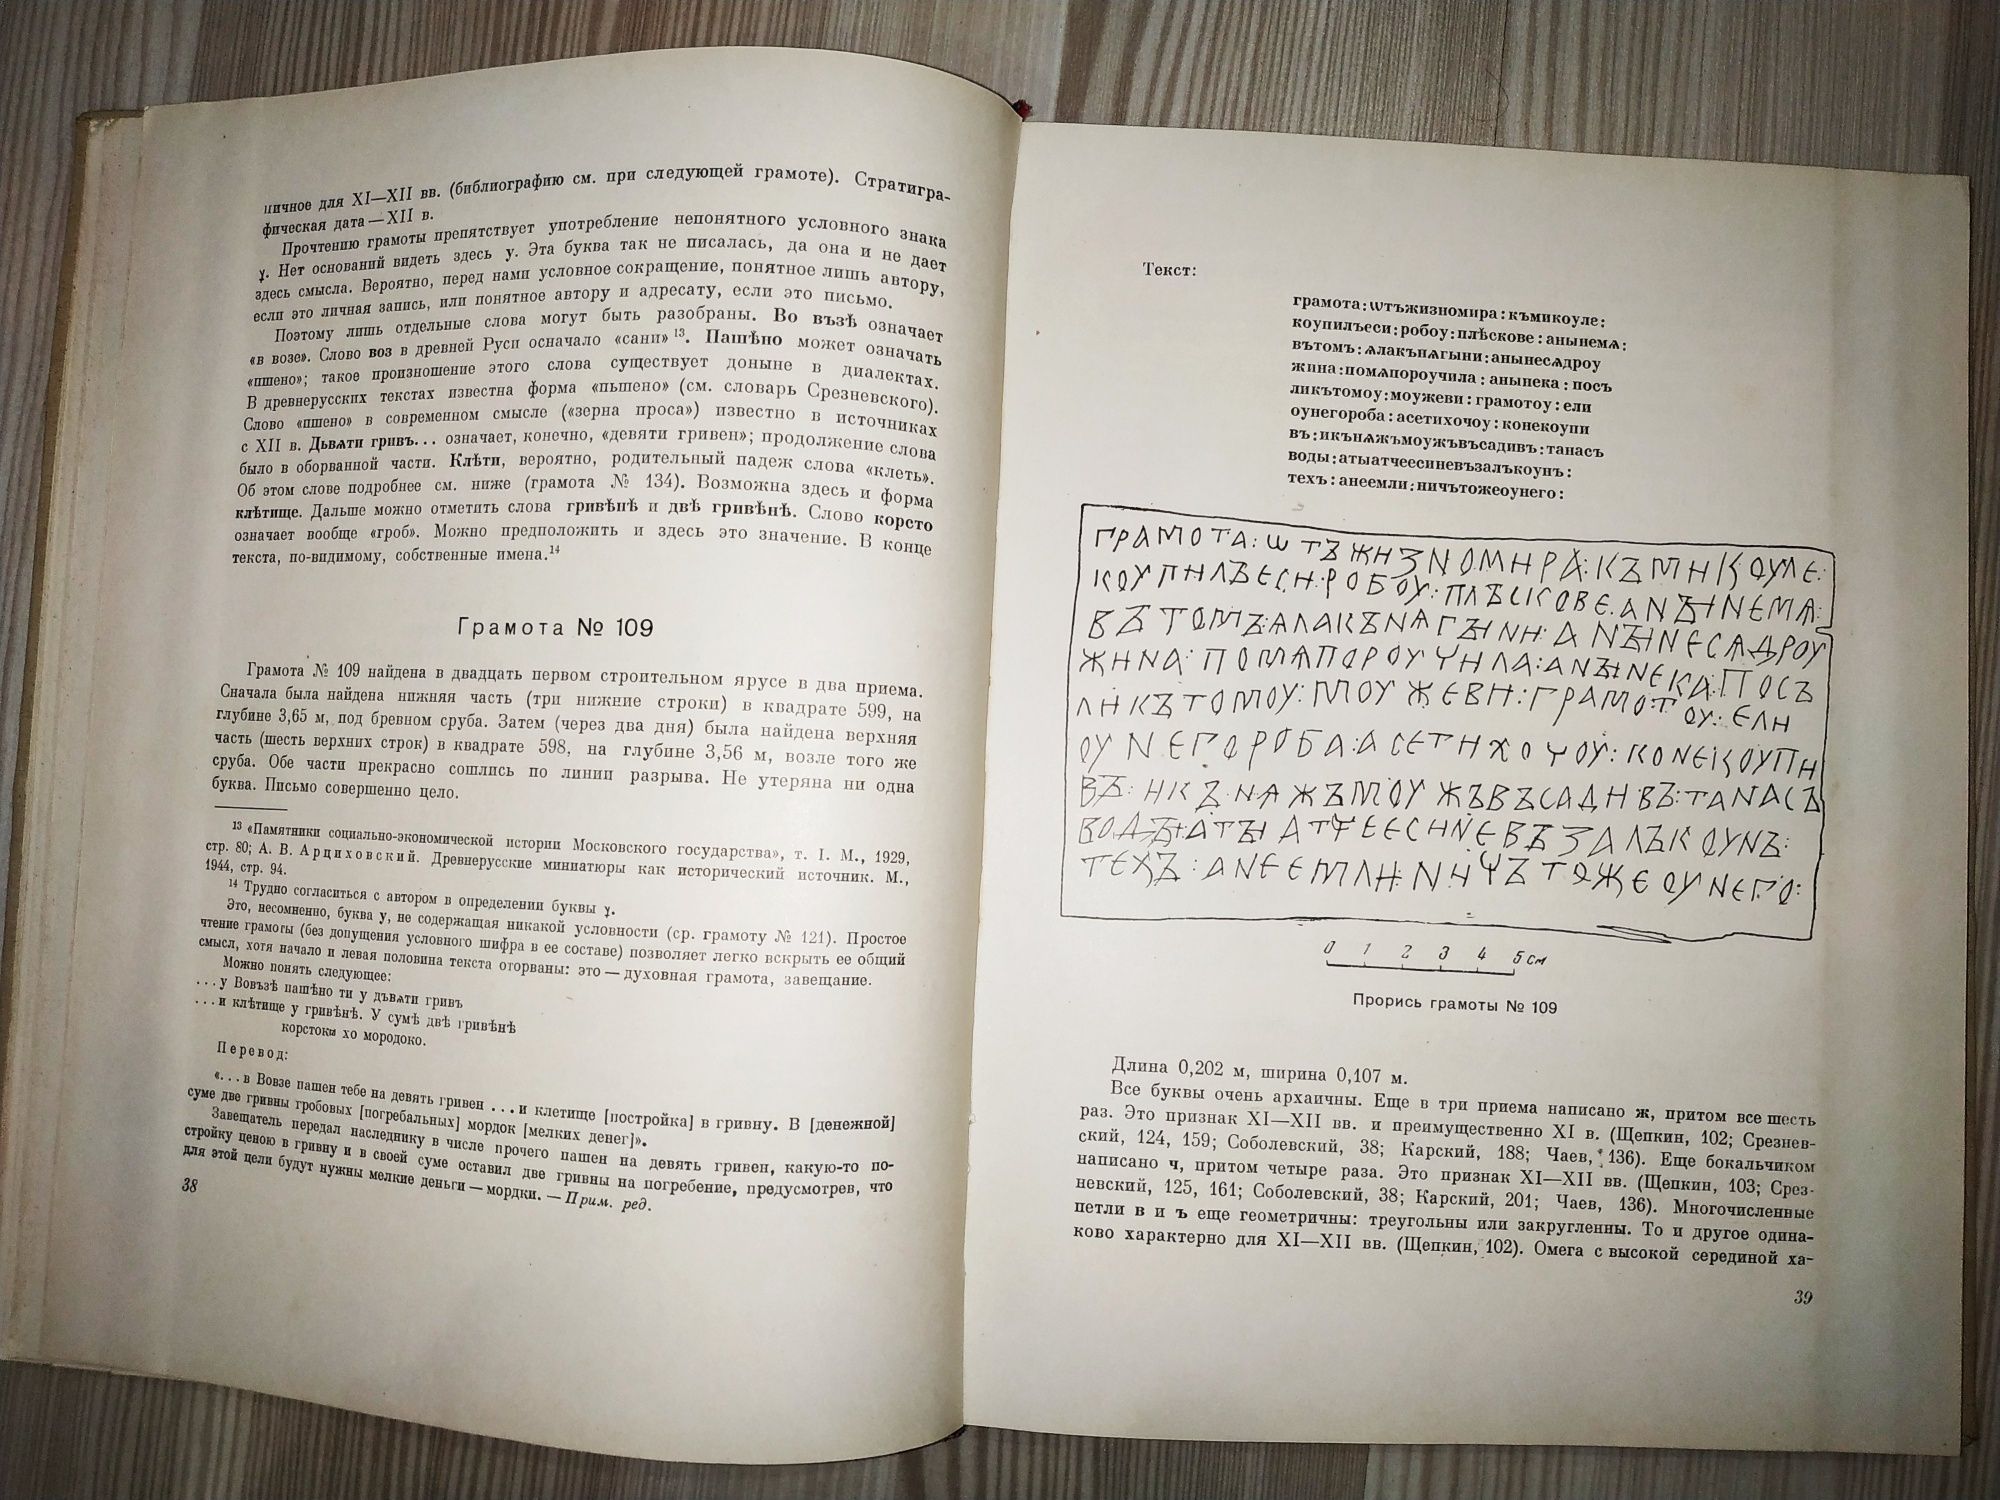 ничное для XI—XII вв. (библиографию см. при следующей грамоте). Стратигра-
фическая дата — XII в.
Прочтению грамоты препятствует употребление непонятного условного знака
ɣ. Нет оснований видеть здесь у. Эта буква так не писалась, да она и не дает
здесь смысла. Вероятно, перед нами условное сокращение, понятное лишь автору,
если это личная запись, или понятное автору и адресату, если это письмо.
Поэтому лишь отдельные слова могут быть разобраны. Во възѣ означает
«в возе». Слово воз в древней Руси осначало «сани» 13. Пашѣно может означать
«пшено»; такое произношение этого слова существует доныне в диалектах.
В древнерусских текстах известна форма «пьшено» (см. словарь Срезневского).
Слово «пшено» в современном смысле («зерна проса») известно в источниках
с XII в. Дьвѧти гривъ... означает, конечно, «девяти гривен»; продолжение слова
было в оборванной части. Клѣти, вероятно, родительный падеж слова «клеть».
Об этом слове подробнее см. ниже (грамота № 134). Возможна здесь и форма
клѣтище. Дальше можно отметить слова гривѣнѣ и двѣ гривѣнѣ. Слово корсто
означает вообще «гроб». Можно предположить и здесь это значение. В конце
текста, по-видимому, собственные имена.14
Грамота № 109
Грамота № 109 найдена в двадцать первом строительном ярусе в два приема.
Сначала была найдена нижняя часть (три нижние строки) в квадрате 599, на
глубине 3,65 м, под бревном сруба. Затем (через два дня) была найдена верхняя
часть (шесть верхних строк) в квадрате 598, на глубине 3,56 м, возле того же
сруба. Обе части прекрасно сошлись по линии разрыва. Не утеряна ни одна
буква. Письмо совершенно цело.
13 «Памятники социально-экономической истории Московского государства», т. I. М., 1929,
стр. 80; А. В. Арциховский. Древнерусские миниатюры как исторический источник. М.,
1944, стр. 94.
14 Трудно согласиться с автором в определении буквы ɣ.
Это, несомненно, буква у, не содержащая никакой условности (ср. грамоту № 121). Простое
чтение грамоты (без допущения условного шифра в ее составе) позволяет легко вскрыть ее общий
смысл, хотя начало и левая половина текста оторваны: это — духовная грамота, завещание.
Можно понять следующее:
...у Вовъзѣ пашѣно ти у дъвѧти гривъ
...и клѣтище у гривѣнѣ. У сумѣ двѣ гривѣнѣ
корстокы хо мородоко.
Перевод:
«...в Вовзе пашен тебе на девять гривен ...и клетище [постройка] в гривну. В [денежной]
суме две гривны гробовых [погребальных] мордок [мелких денег]».
Завещатель передал наследнику в числе прочего пашен на девять гривен, какую-то по-
стройку ценою в гривну и в своей суме оставил две гривны на погребение, предусмотрев, что
для этой цели будут нужны мелкие деньги — мордки. — Прим. ред.
38
Текст:
грамота : ѡтъжизномира : къмикоуле :
коупилъеси : робоу : плѣскове : анынемѧ :
вътомъ : ѧлакънѧгыни : анынесѧдроу
жина : помѧпороучила : анынека : посъ
ликътомоу : моужеви : грамотоу : ели
оунегороба : асетихочоу : конекоупи
въ : икънѧжъмоужъвъсадивъ : танасъ
воды : атыатчеесиневъзалъкоунъ :
техъ : анеемли : ничътожеоунего :
ГРАМОТА : ѠТЪЖИЗНОМИРА : КЪМИКОУЛЕ :
КОУПИЛЪЕСИ : РОБОУ : ПЛЪСКОВЕ : АНЪИНЕМѦ :
ВЪТОМЪ : ѦЛАКЪНѦГЪИНИ : АНЪИНЕСѦДРОУ
ЖИНА : ПОМѦПОРОУЧИЛА : АНЪИНЕКА : ПОСЪ
ЛИКЪТОМОУ : МОУЖЕВИ : ГРАМОТОУ : ЕЛИ
ОУНЕГОРОБА : АСЕТИХОЧОУ : КОНЕКОУПИ
ВЪ : ИКЪНѦЖЪМОУЖЪВЪСАДИВЪ : ТАНАСЪ
ВОДЪИ : АТЪИАТЧЕЕСИНЕВЪЗАЛЪКОУНЪ :
ТЕХЪ : АНЕЕМЛИ : НИЧЪТОЖЕОУНЕГО :
0 1 2 3 4 5 см
Прорись грамоты № 109
Длина 0,202 м, ширина 0,107 м.
Все буквы очень архаичны. Еще в три приема написано ж, притом все шесть
раз. Это признак XI—XII вв. и преимущественно XI в. (Щепкин, 102; Срезнев-
ский, 124, 159; Соболевский, 38; Карский, 188; Чаев, 136). Еще бокальчиком
написано ч, притом четыре раза. Это признак XI—XII вв. (Щепкин, 103; Срез-
невский, 125, 161; Соболевский, 38; Карский, 201; Чаев, 136). Многочисленные
петли в и ъ еще геометричны: треугольны или закругленны. То и другое одина-
ково характерно для XI—XII вв. (Щепкин, 102). Омега с высокой серединой ха-
39